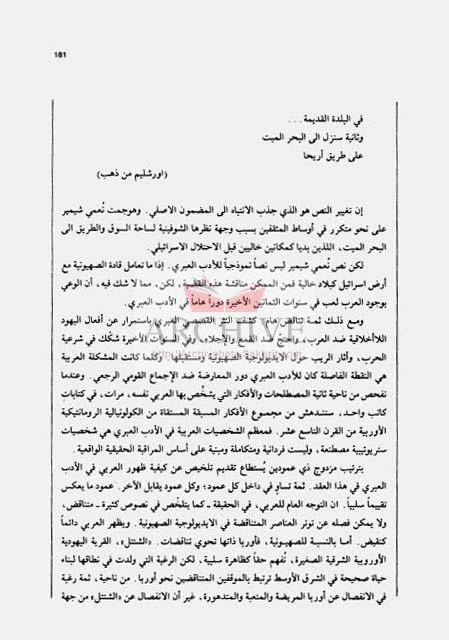 181
في البلدة القديمة . . .
وثانية سننزل الى البحر الميت
على طريق أريحا
(اورشليم من ذهب)
إن تغيير النص هو الذي جذب الانتباه الى المضمون الاصلي . وهوجمت نُعمي شيمير
على نحو متكرر في أوساط المثقفين بسبب وجهة نظرها الشوفينية لساحة السوق والطريق الى
البحر الميت، اللذين يديا كمكانين خاليين قبل الاحتلال الاسرائيلي .
لكن نص نُعمي شيمير ليس نصاً نموذجياً للأدب العبري . إذا ما تعامل قادة الصهيونية مع
أرض اسرائيل كبلاد خالية فمن الممكن مناقشة هذه القضية، لكن، مما لا شك فيه، أن الوعي
بوجود العرب لعب في سنوات الثمانين الأخيرة دوراً هاماً في الأدب العبري .
ومع ذلك ثمة تناقض هام : كشفت النثر القصصي العبري باستمرار عن أفعال اليهود
اللاأخلاقية ضد العرب، واحتج ضد القمع والإجلاء، وفي السنوات الأخيرة شكّك في شرعية
الحرب، وأثار الريب حول الايديولوجيا الصهيونية ومستقبلها . وكلما كانت المشكلة العربية
هي النقطة الفاصلة كان للأدب العبري دور المعارضة ضد الإجماع القومي الرجعي . وعندما
نفحص من ناحية ثانية المصطلحات والأفكار التي يشخّص بها العربي نفسه، مرات، في كتابات
كاتب واحد، سنندهش من مجموع الأفكار المسبقة المستقاة من الكولونيالية الرومانتيكية
الأوربية من القرن التاسع عشر . فمعظم الشخصيات العربية في الأدب العبري هي شخصيات
ستريوتيبية مصطنعة، وليست فردانية ومتكاملة ومبنية على أساس المراقبة الحقيقية الواقعية .
بترتيب مزدوج ذي عمودين يُستطاع تقديم تلخيص عن كيفية ظهور العربي في الأدب
العبري في هذا العقد . ثمة تساوٍ في داخل كل عمود؛ وكل عمود يقابل الآخر . عمود ما يعكس
تقييماً سلبياً . ان التوجه العام للعربي، في الحقيقة ـ كما يتلخّص في نصوص كثيرة ـ متناقض،
ولا يمكن فصله عن توتر العناصر المتناقضة في الايديولوجية الصهيونية . ويظهر العربي دائماً
كنقيض . أما بالنسبة للصهيونية، فأوربا ذاتها تحوي تناقضات . «الشتتل»، القرية اليهودية
الأوروبية الشرقية الصغيرة، تُفهم حقاً كظاهرة سلبية، لكن الرغبة التي ولدت في نطاقها لبناء
حياة صحيحة في الشرق الأوسط ترتبط بالموقفين المتناقضين نحو أوربا . من ناحية، ثمة رغبة
في الانفصال عن أوربا المريضة والمتعبة والمتدهورة، غير أن الانفصال عن «الشتتل» من جهة
ARCHIVE